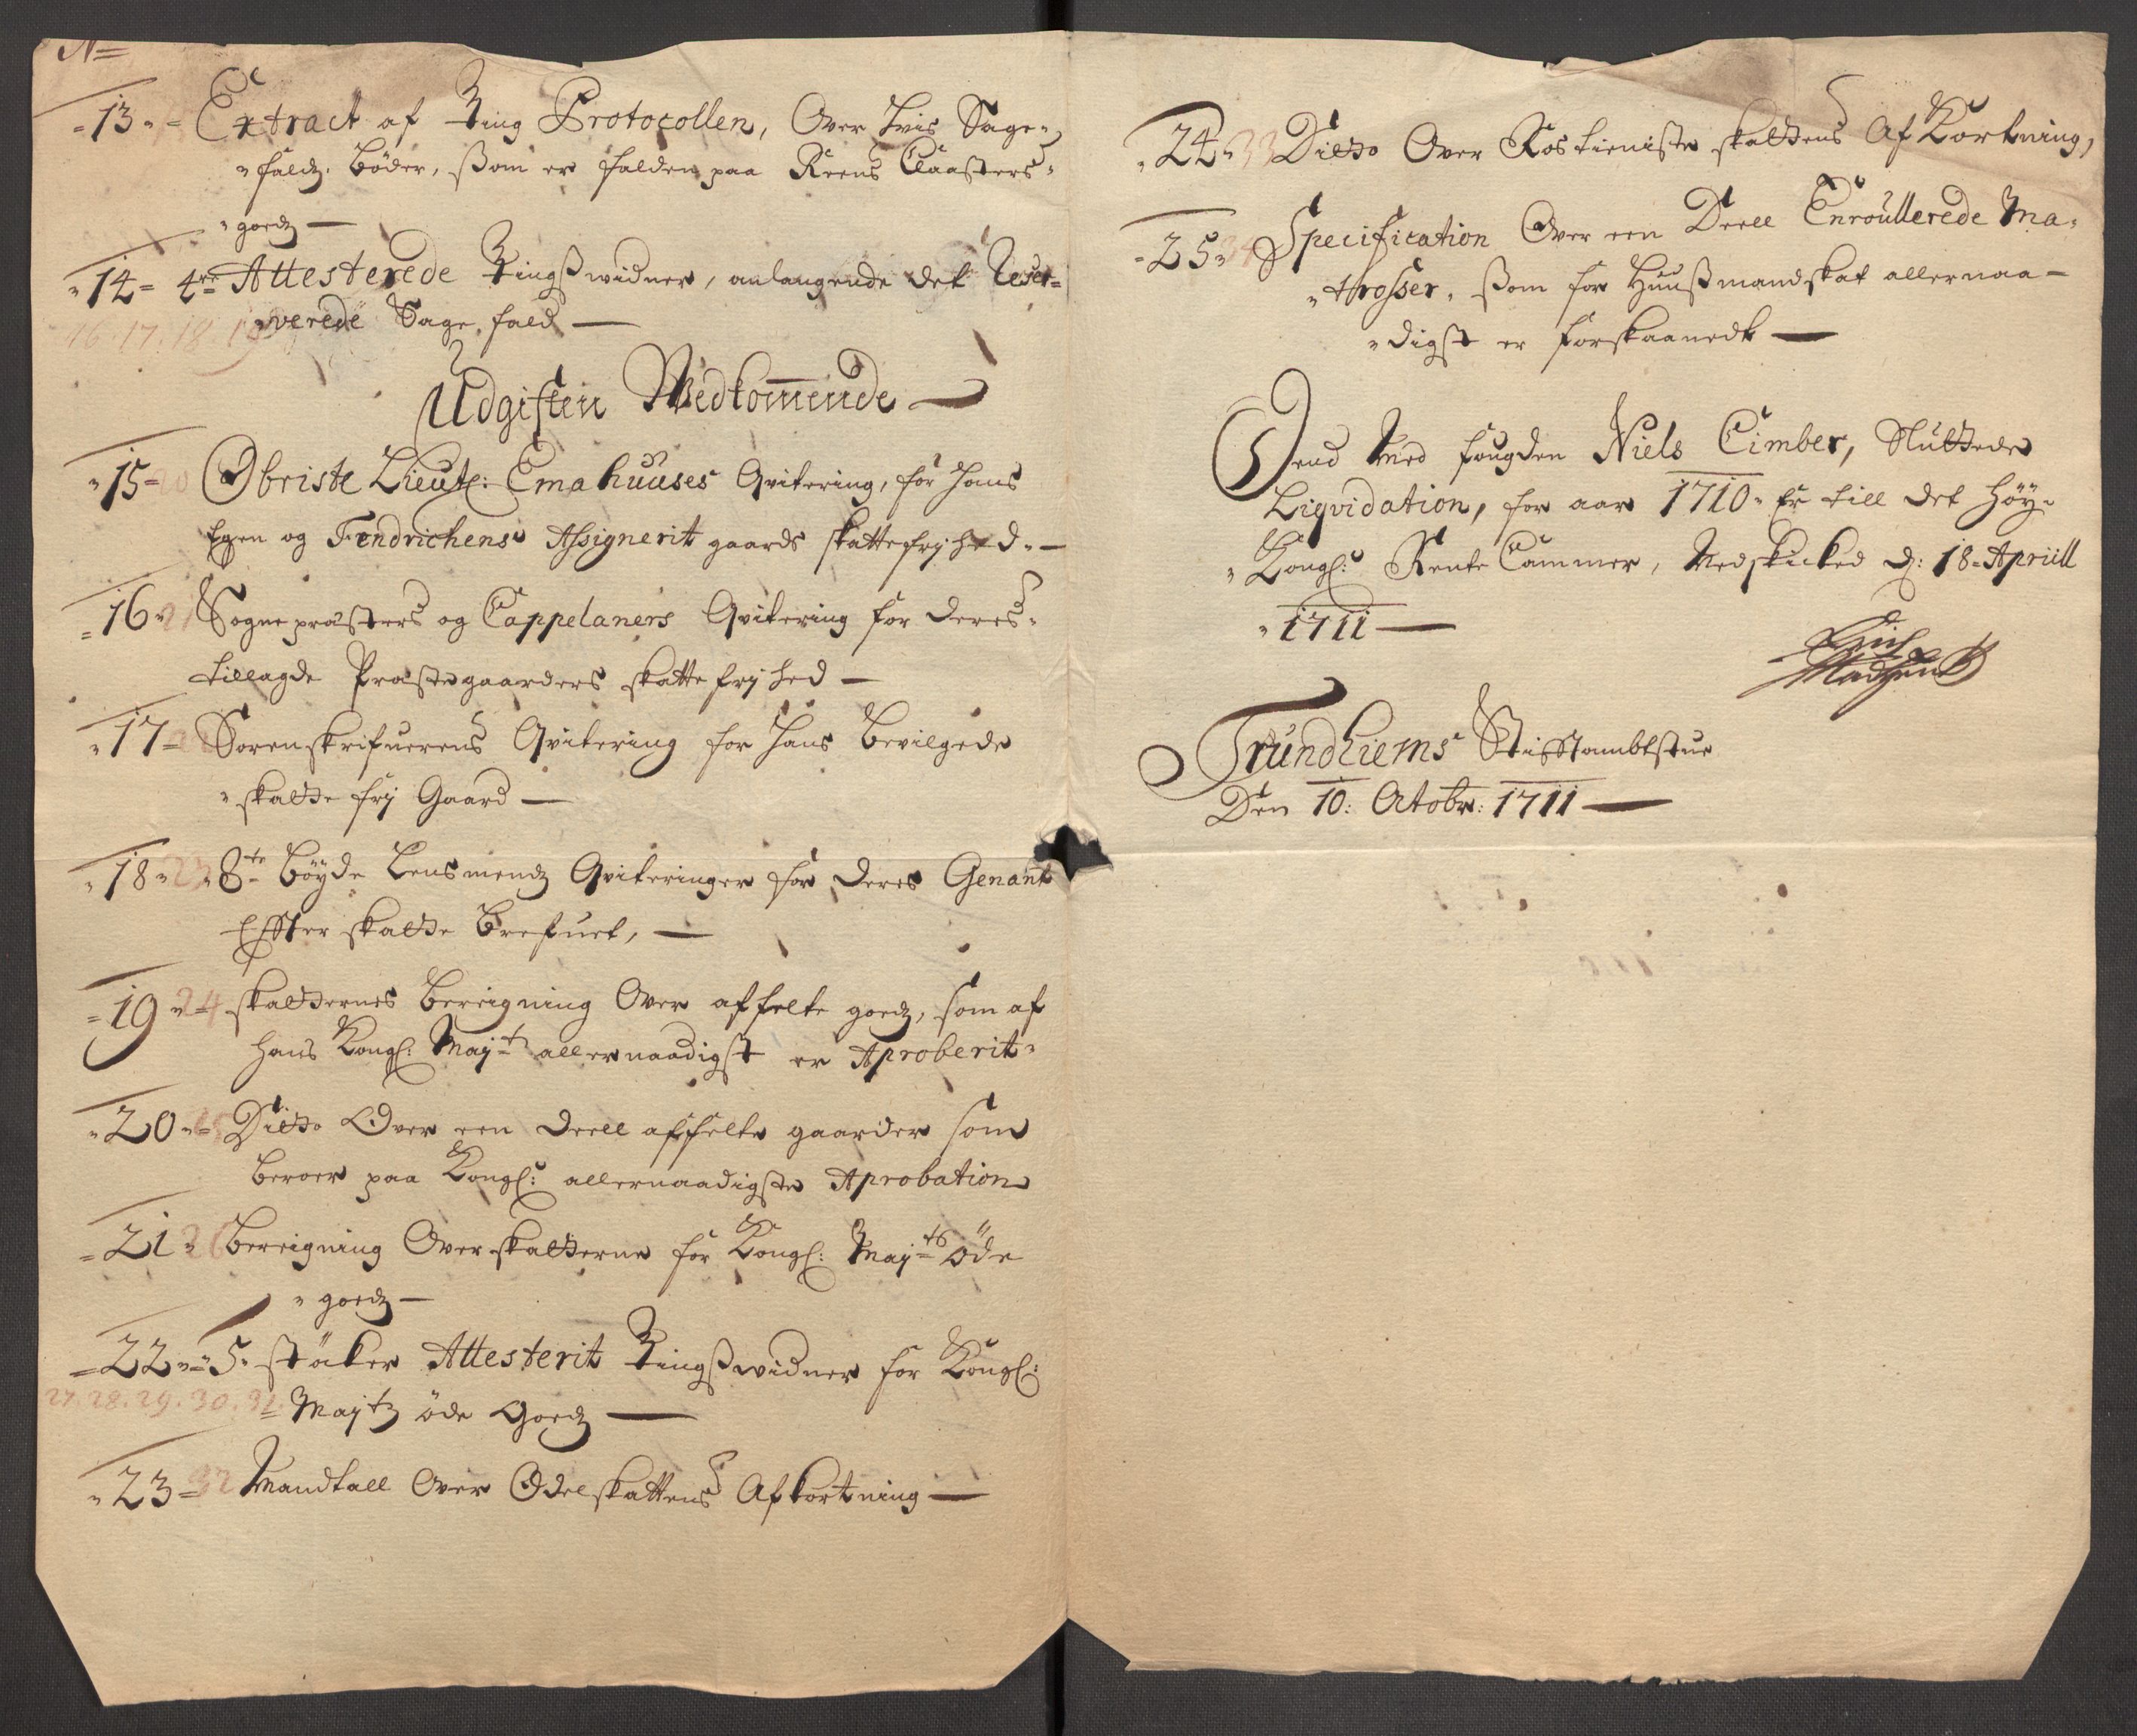 No
13 Extract af Ting Protocollen, Over hvis Sage-
fald. bøder, ssom er falden paa Reens Claasters
goedz
14 4re Attesterede Tingsswidner, anlangende det Reser-
verede Sage fald
16. 17. 18. 19
Udgiften Wedkommende
15 20 Obriste Lieutt: Emahuuses Qvitering, for hans
Egen og Fendrichens Assignerit gaards skattefrihed
16 21 Sognepræsters og Cappelaners Qvitering for deres
tillagde Præstegaarders skatte frihed
17 22 Sorenskrifuerens Qvitering for hans bevilgede
skatte frj Gaard
18 23 8te bøyde Lensmendz Qviteringer for deres Genant
Effter skatte brefuet,
19 24 skatternes bereigning Over affelte goedz, som af
hans Kongl: Mayt allernaadigst er Aproberit
20 25 Ditto Over een deell affelte gaarder som
beroer paa Kongl: allernaadigste Aprobation
21 26 bereigning Over skatterne for Kongl: Mayts øde
goedz
22 5 støcker Attesterit Tingsswidner for Kongl:
27. 28. 29. 30. 31 Maytz øde Goedz
23 32 Mandtall Over Odelskattens Afkortning
24 33 Ditto Over Rostieniste skattens Af Kortning,
25 34 Specification Over een Deell Enroullerede Ma-
trosser, ssom for Huussmandskat allernaa-
digst er forskaanedt
Dend Med fougden Niels Cimber, Sluttede
Liqvidation, for aar 1710 Er till det høy
Kongl: Rente Cammer, Nedskicked d: 18 Apriill
1711
Trundhiems Stifftambtstue
Den 10: Octobr: 1711